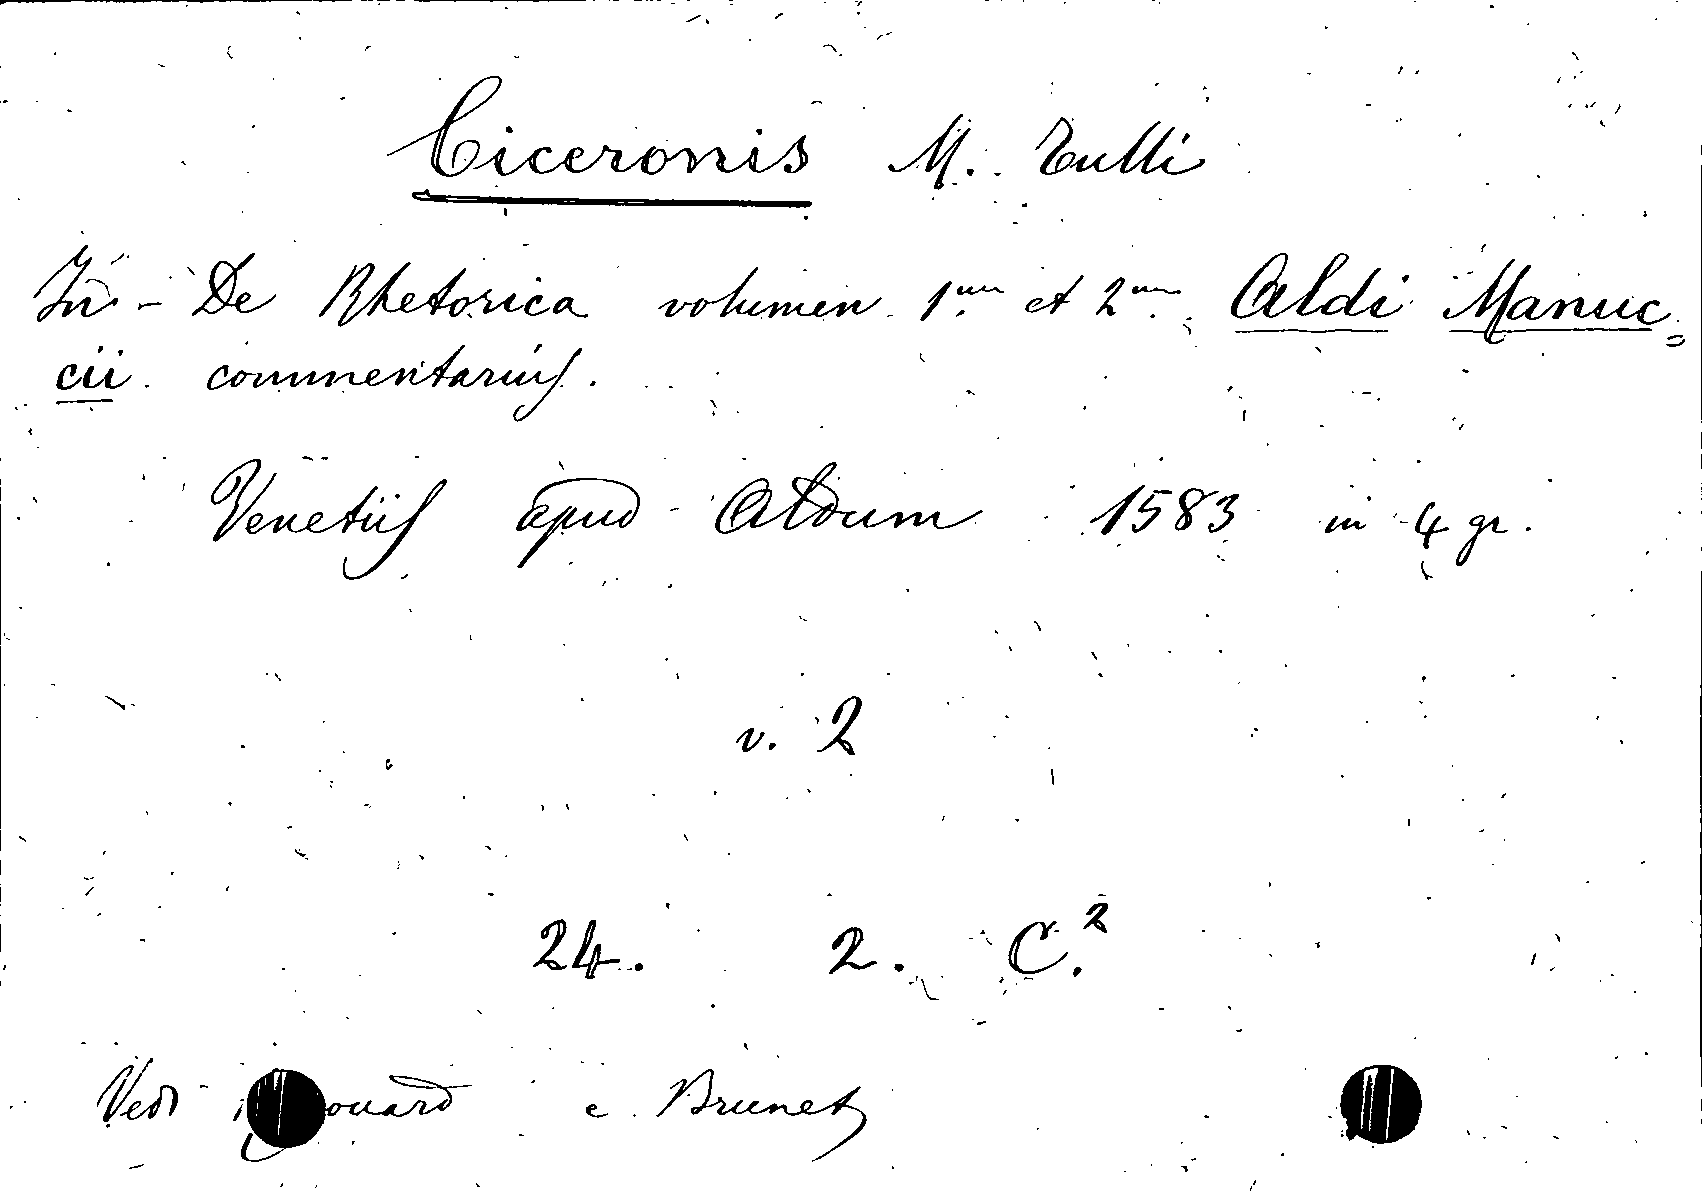 Ciceronis M. Tulli
In - De Rhetorica volumen 1um et 2um Aldi Manuc=
cii commentarius.
Venetiis apud Aldum 1583 in 4 gr.
v. 2
24. 2. C.2
Vedi e Brunet